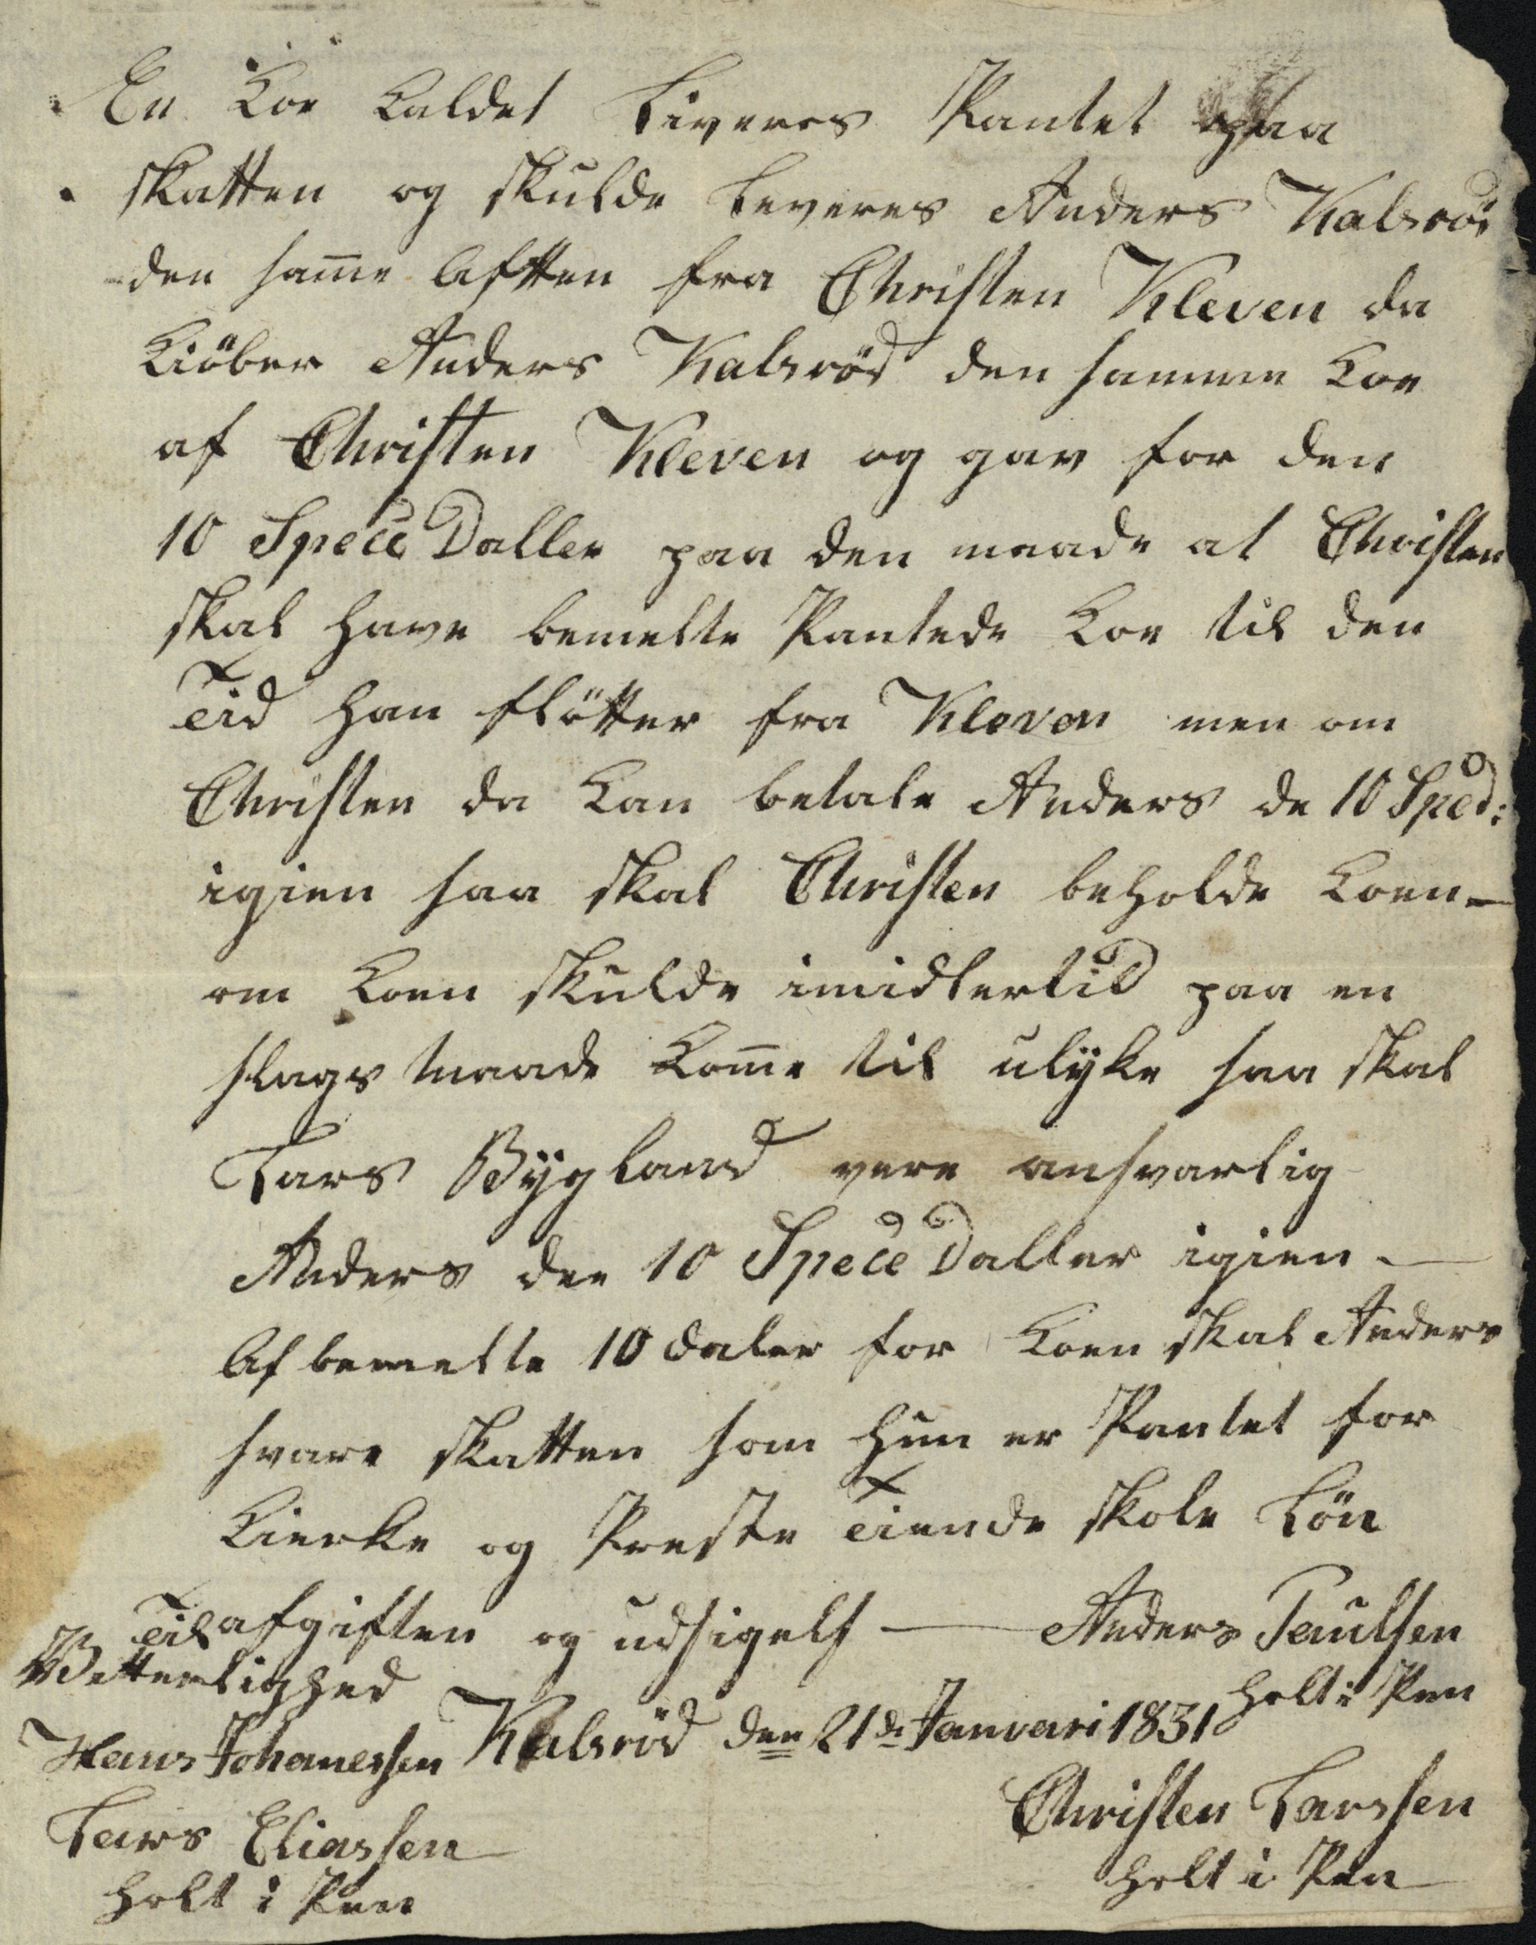 En Koe Kaldet Liveros Pantet paa
skatten og skulde leveres Anders Kalsrød
den sam̄e Aften fra Christen Kleven da
Kiøber Anders Kalsrød den samme Koe
af Christen Kleven og gav for den
10 Specie Daller paa den maade at Christen
skal have bemelte Pantede Koe til den
Tid han fløtter fra Kleven men om
Christen da Kan betale Anders de 10 Sped:
igien saa skal Christen beholde Koen –
om Koen skulde imidlertid paa en
slags maade Kom̄e til ulyke saa skal
Lars Bygland vere ansvarlig
Anders den 10 Specie Daller igien –
Af bemelte 10 daler for Koen skal Anders
svare skatten som hun er Pantet for
Kierke og Preste Tiende skole Løn
afgiften og udsigelse — Anders Paulsen
holt i Pen
Til
Vitterlighed
Kalsrød den 21de Januari 1831
Hans Johanessen
Christen Larssen
holt i Pen
Lars Eliassen
holt i Pen